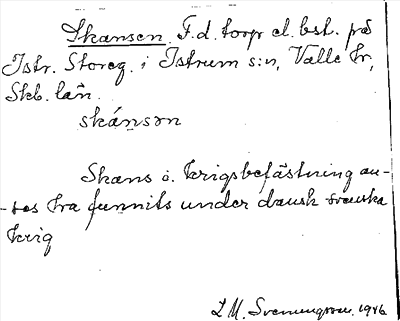 Skansen. F.d. torp el. bst. på
Istr. Storeg. i Istrum s:n, Valle hr,
Skb. län.
skánsən
Skans o. krigsbefästning an-
-ses ha funnits under dansk-svenska
krig
L M. Svenungsson. 1946